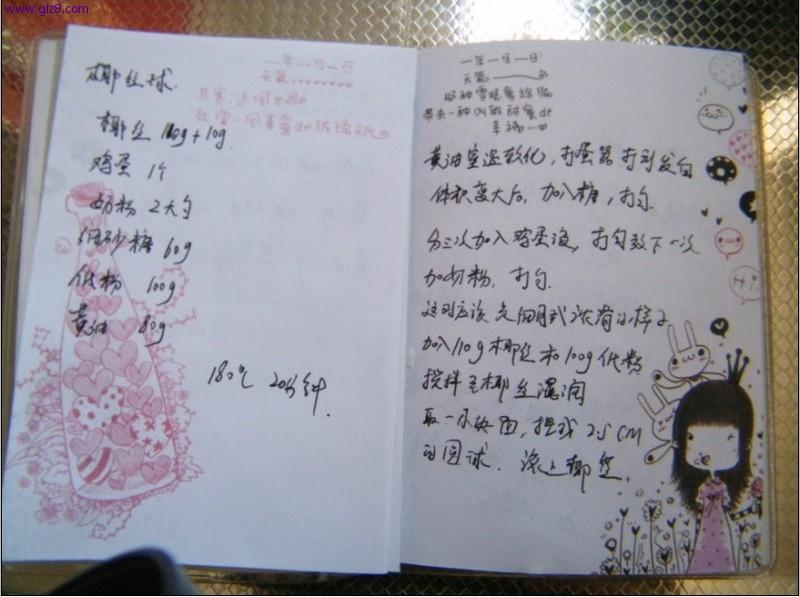 www.glz8.com
一年一月一日
天气
椰丝球.
椰丝 110g+10g.
鸡蛋 1个
奶粉 2大勺
细砂糖 60g
低粉 100g
黄油 80g
180℃ 20分钟.
一年一月一日
天气
幸福
黄油室温软化,打蛋器打到发白
体积变大后,加入糖,打匀.
分三次加入鸡蛋液,打匀致下一次
加奶粉,打匀.
这时应该
加入110g椰丝和100g低粉
搅拌至椰丝湿润
取一小块面,捏成2.5CM
的圆球.滚上椰丝.